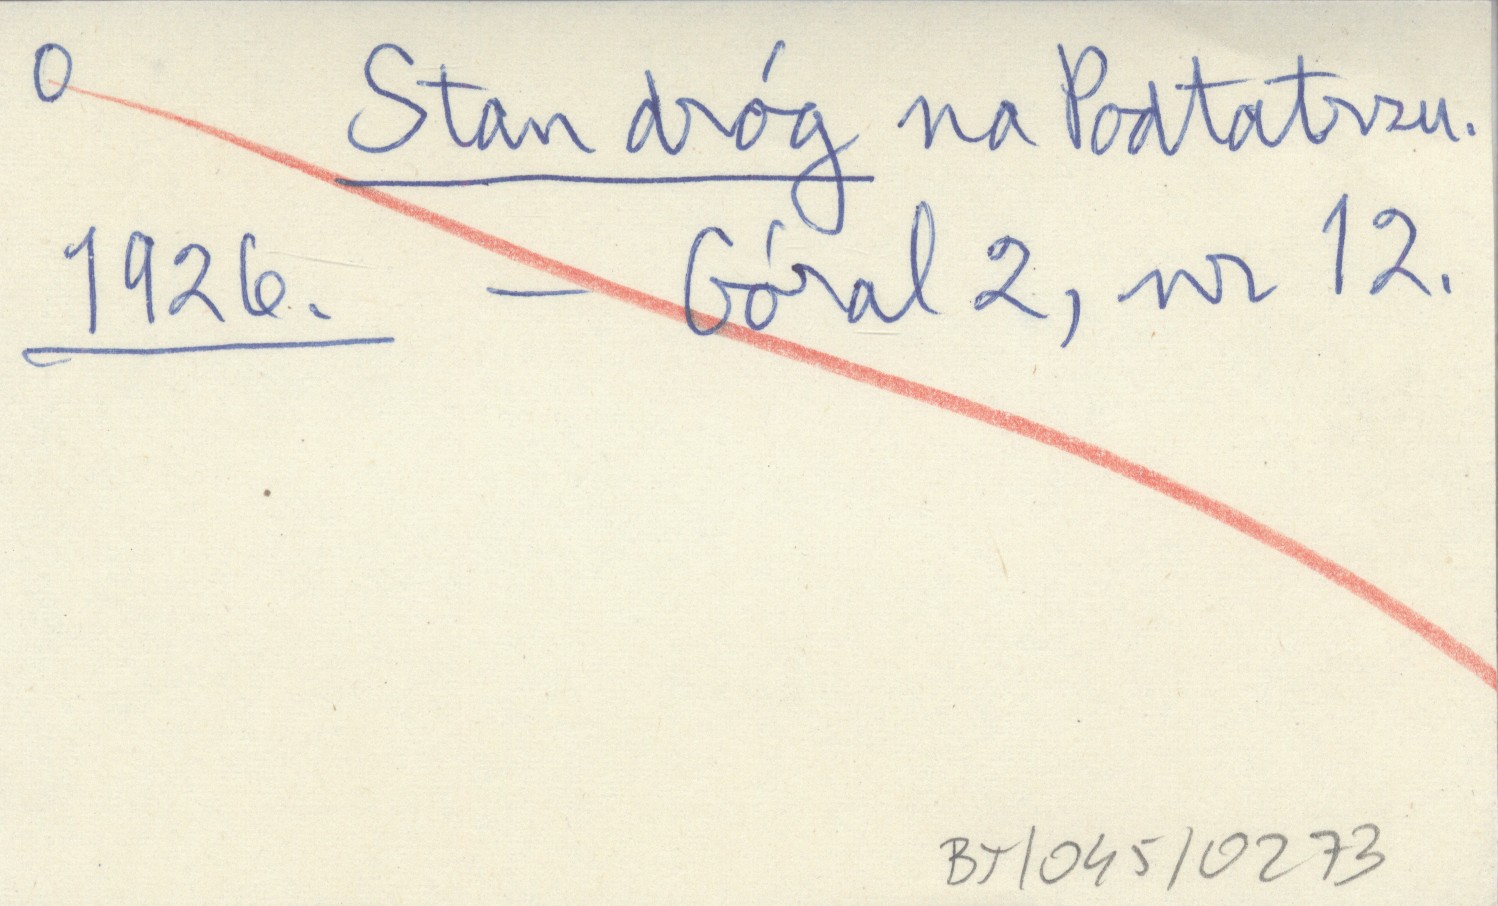 0 Stan dróg na Podtatrzu.
1926. — Góral 2, nr 12.
BT/045/0273